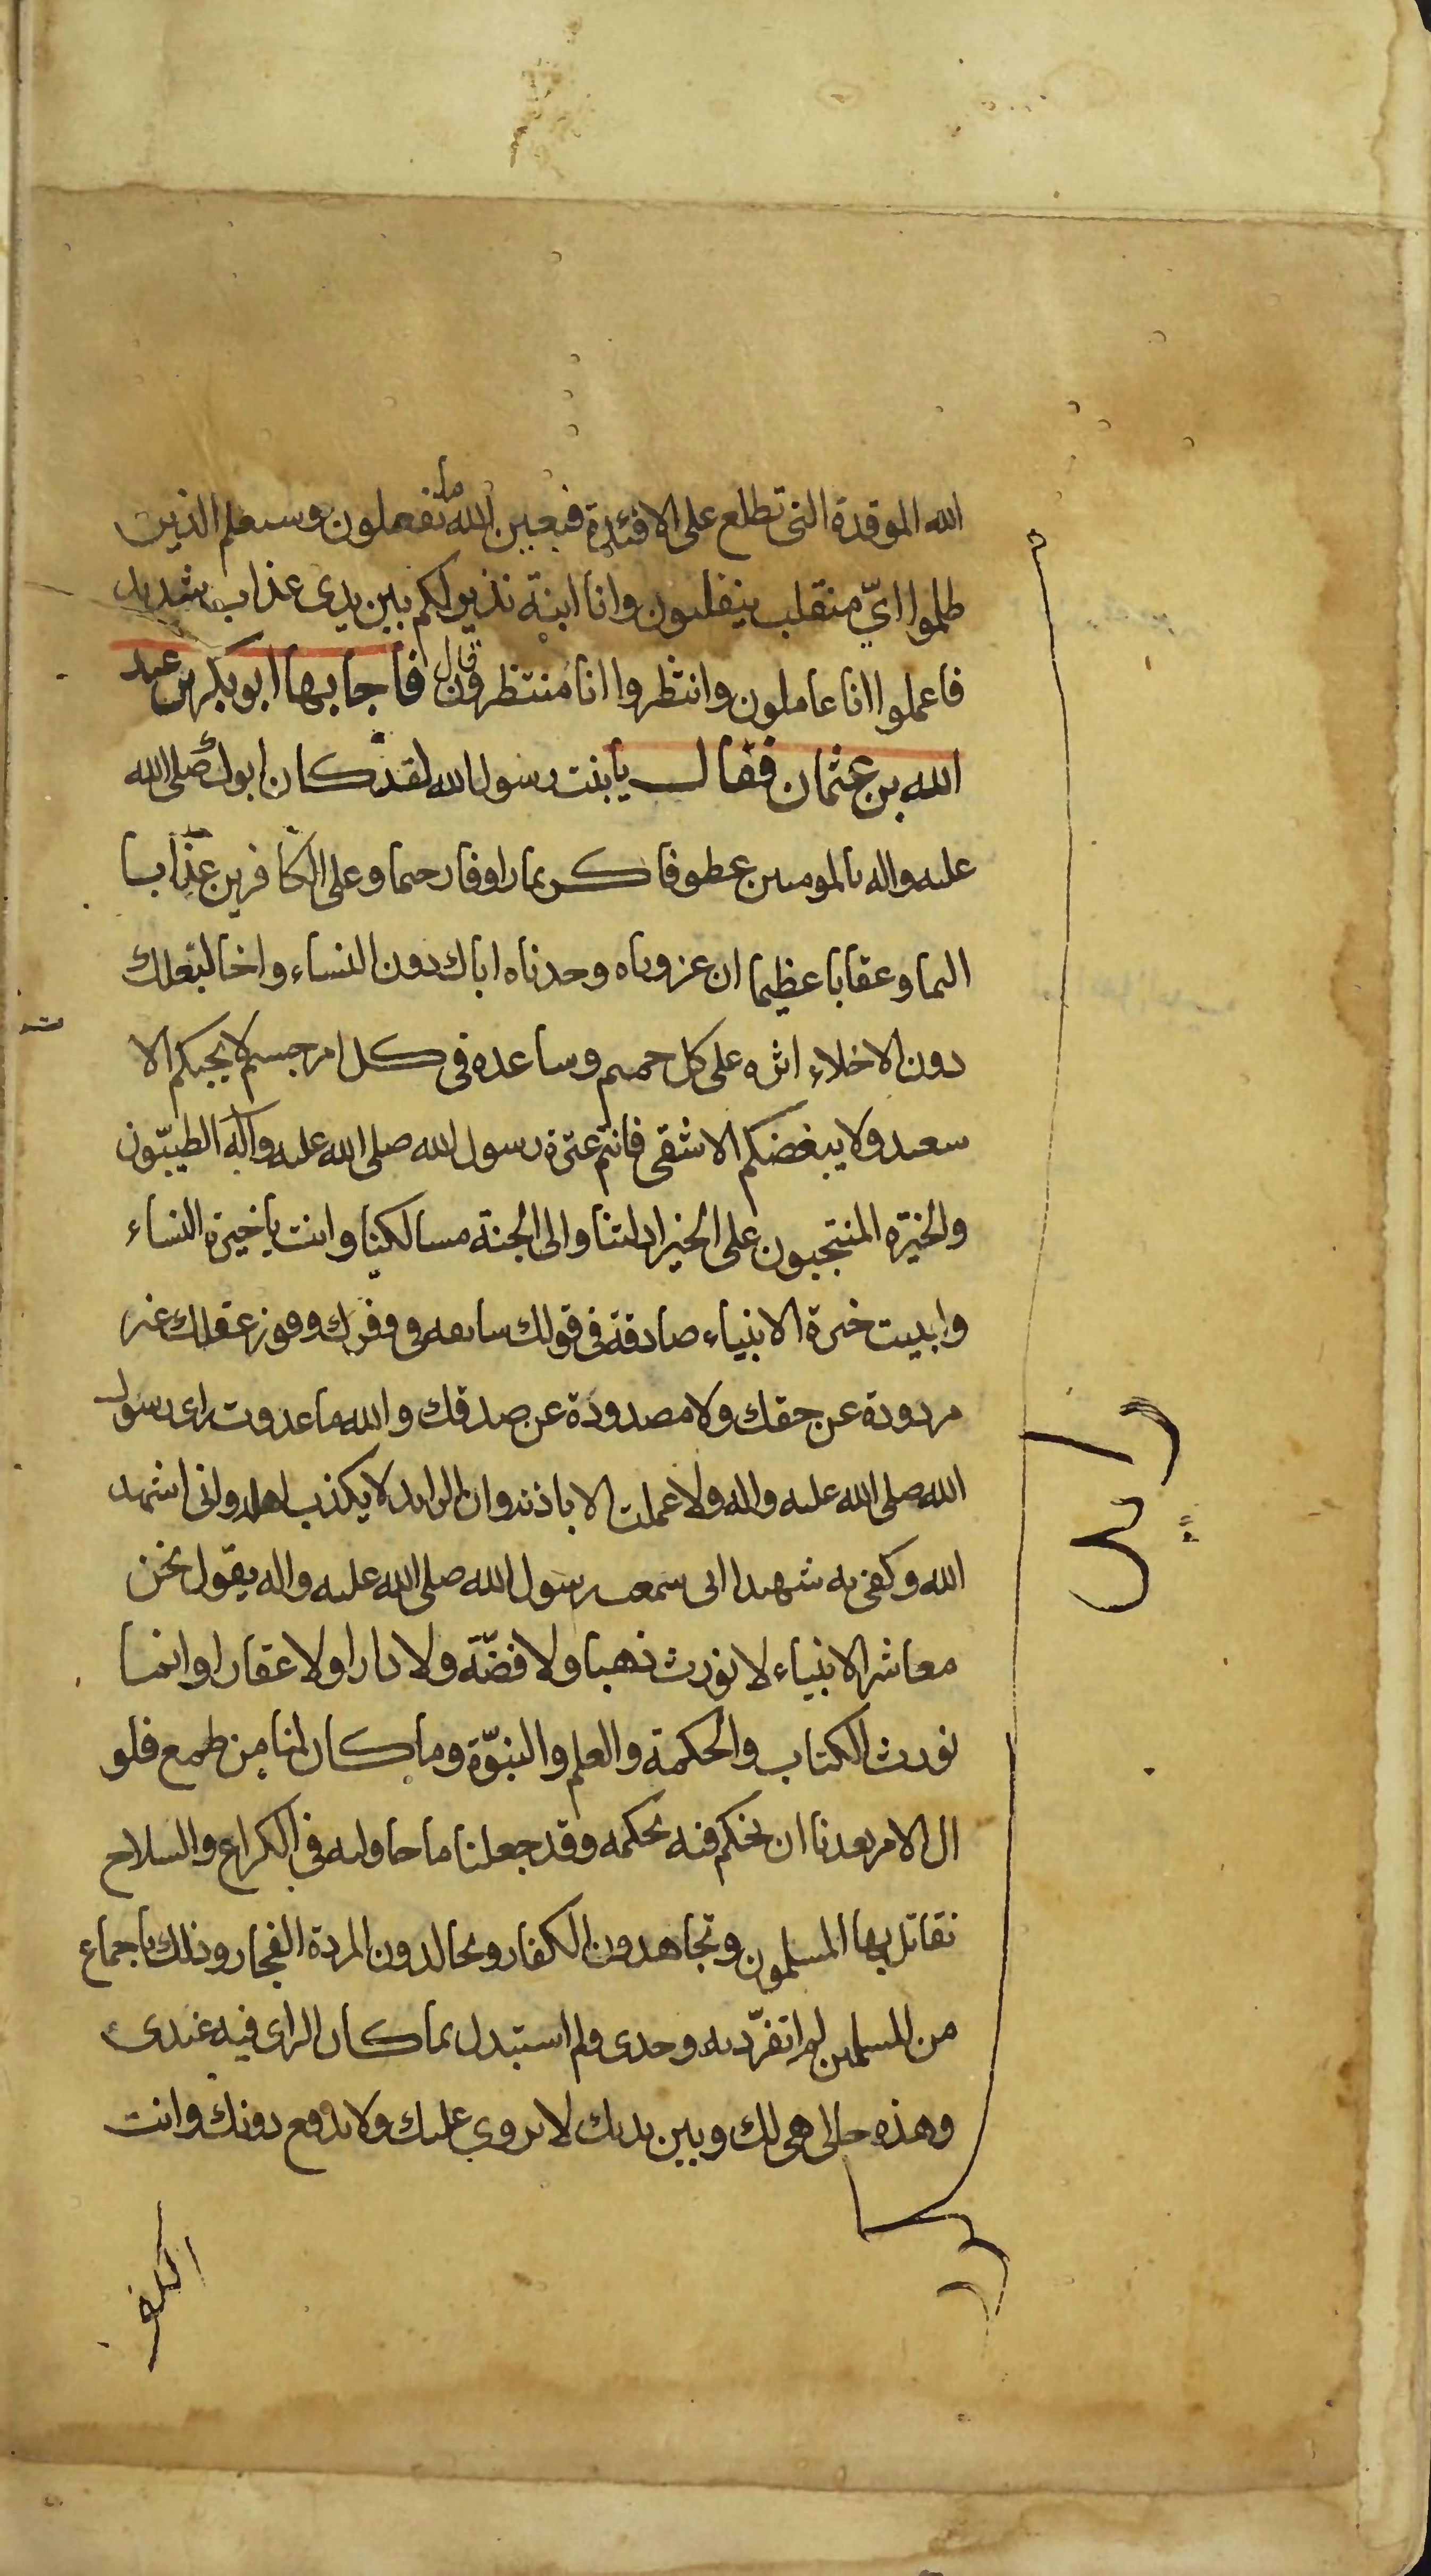 الله الموقدة التى تطلع على الافئدة فبعين الله ما تفعلون وسيعلم الذين
ظلموا ايّ منقلب ينقلبون وانا ابنة نذير لكم بين يدى عذاب شديد
فاعملوا انا عاملون وانتظروا انا منتظرون قال فاجابها ابو بكر بن عبد
الله بن عثمان فقال يا بنت رسول الله لقد كان ابوك صلى الله
عليه واله بالمومنين عطوفا كريما راوفا رحيما وعلى الكافرين عذابا
اليما وعقابا عظيما ان عزوناه وجدناه اباك دون النساء واخا لبعلك
دون الاخلاء اثره على كل حميم وساعده فى كل امر جسيم لا يحبكم الا
سعيد ولا يبغضكم الا شقى فانتم عترة رسول الله صلى الله عليه واله الطيبّون
والخيرة المنتجبون على الخير ادلتنا والى الجنة مسالكنا وانت يا خيرة النساء
وابنت خيرة الانبياء صادقة فى قولك سابقه فى وفور عقلك غير
مردودة عن حقك ولا مصدودة عن صدقك والله ما عدوت راى رسول
الله صلى الله عليه واله ولا عملت الا باذنه وان الرايد لا يكذب اهله وانى اشهد
الله وكفى به شهيدا انى سمعت رسول الله صلى الله عليه واله يقول نحن
معاشر الانبياء لا نورث ذهبا ولا فضّة ولا دارا ولا عقارا وانما
نورث الكتاب والحكمة والعلم والنبوّة وما كان لنا من طمع فلو
ال الامر بعدنا ان يحكم فيه بحكمه وقد جعلنا ما حاولته فى الكراع والسلاح
نقاتل بها المسلمون وتجاهدون الكفار ويجالدون المردة الفجار وذلك باجماع
من المسلمين لم اتفرّد به وحدى ولم استبدل بما كان الراى فيه عندى
وهذه حالى هى لك وبين يديك لا نزوى عليك ولا ندفع دونك وانت